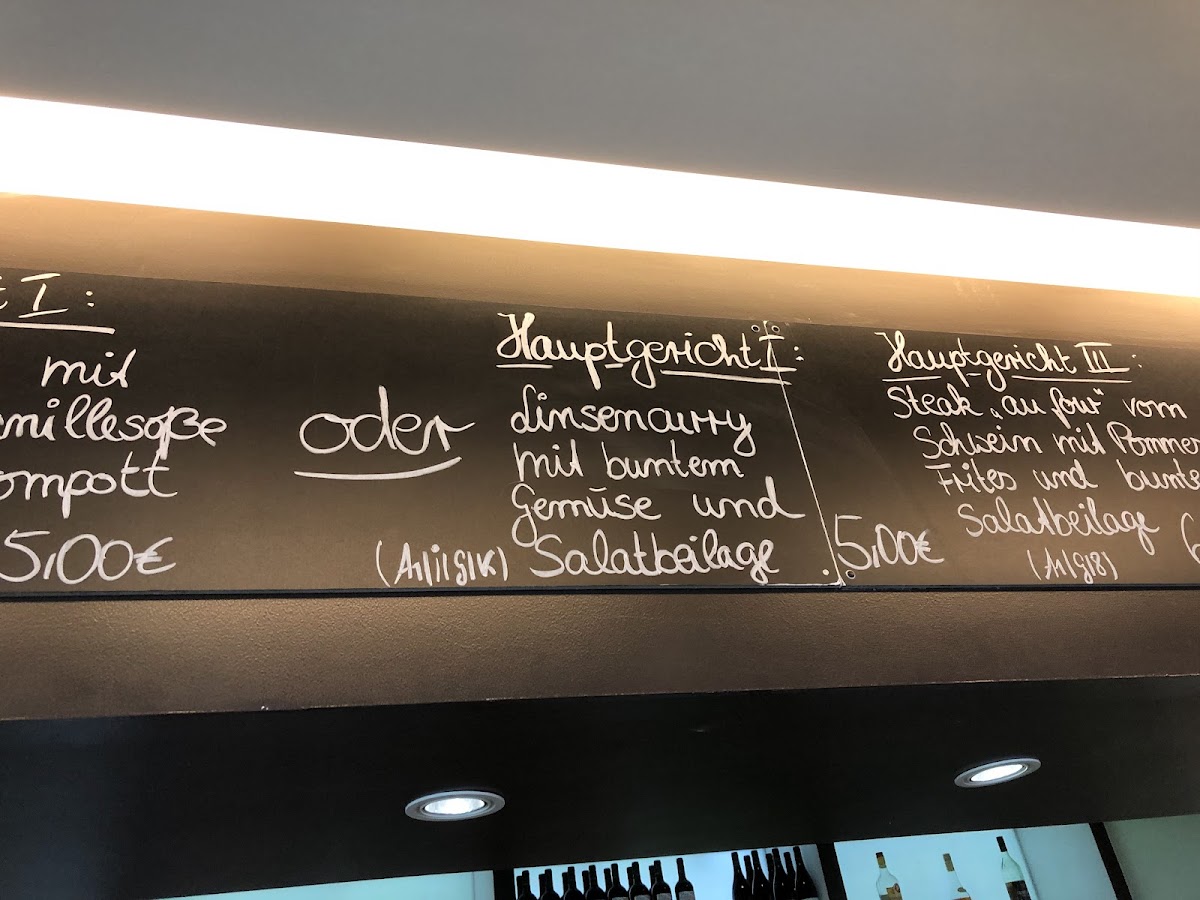 t I:
mit
millesoße
ompott
5,00€
oder
Hauptgericht I:
Linsencurry
mit buntem
Gemüse und
Salatbeilage
5,00€
Hauptgericht III:
Steak „au four" vom
Schwein mit Pommes
Frites und bunte
Salatbeilage